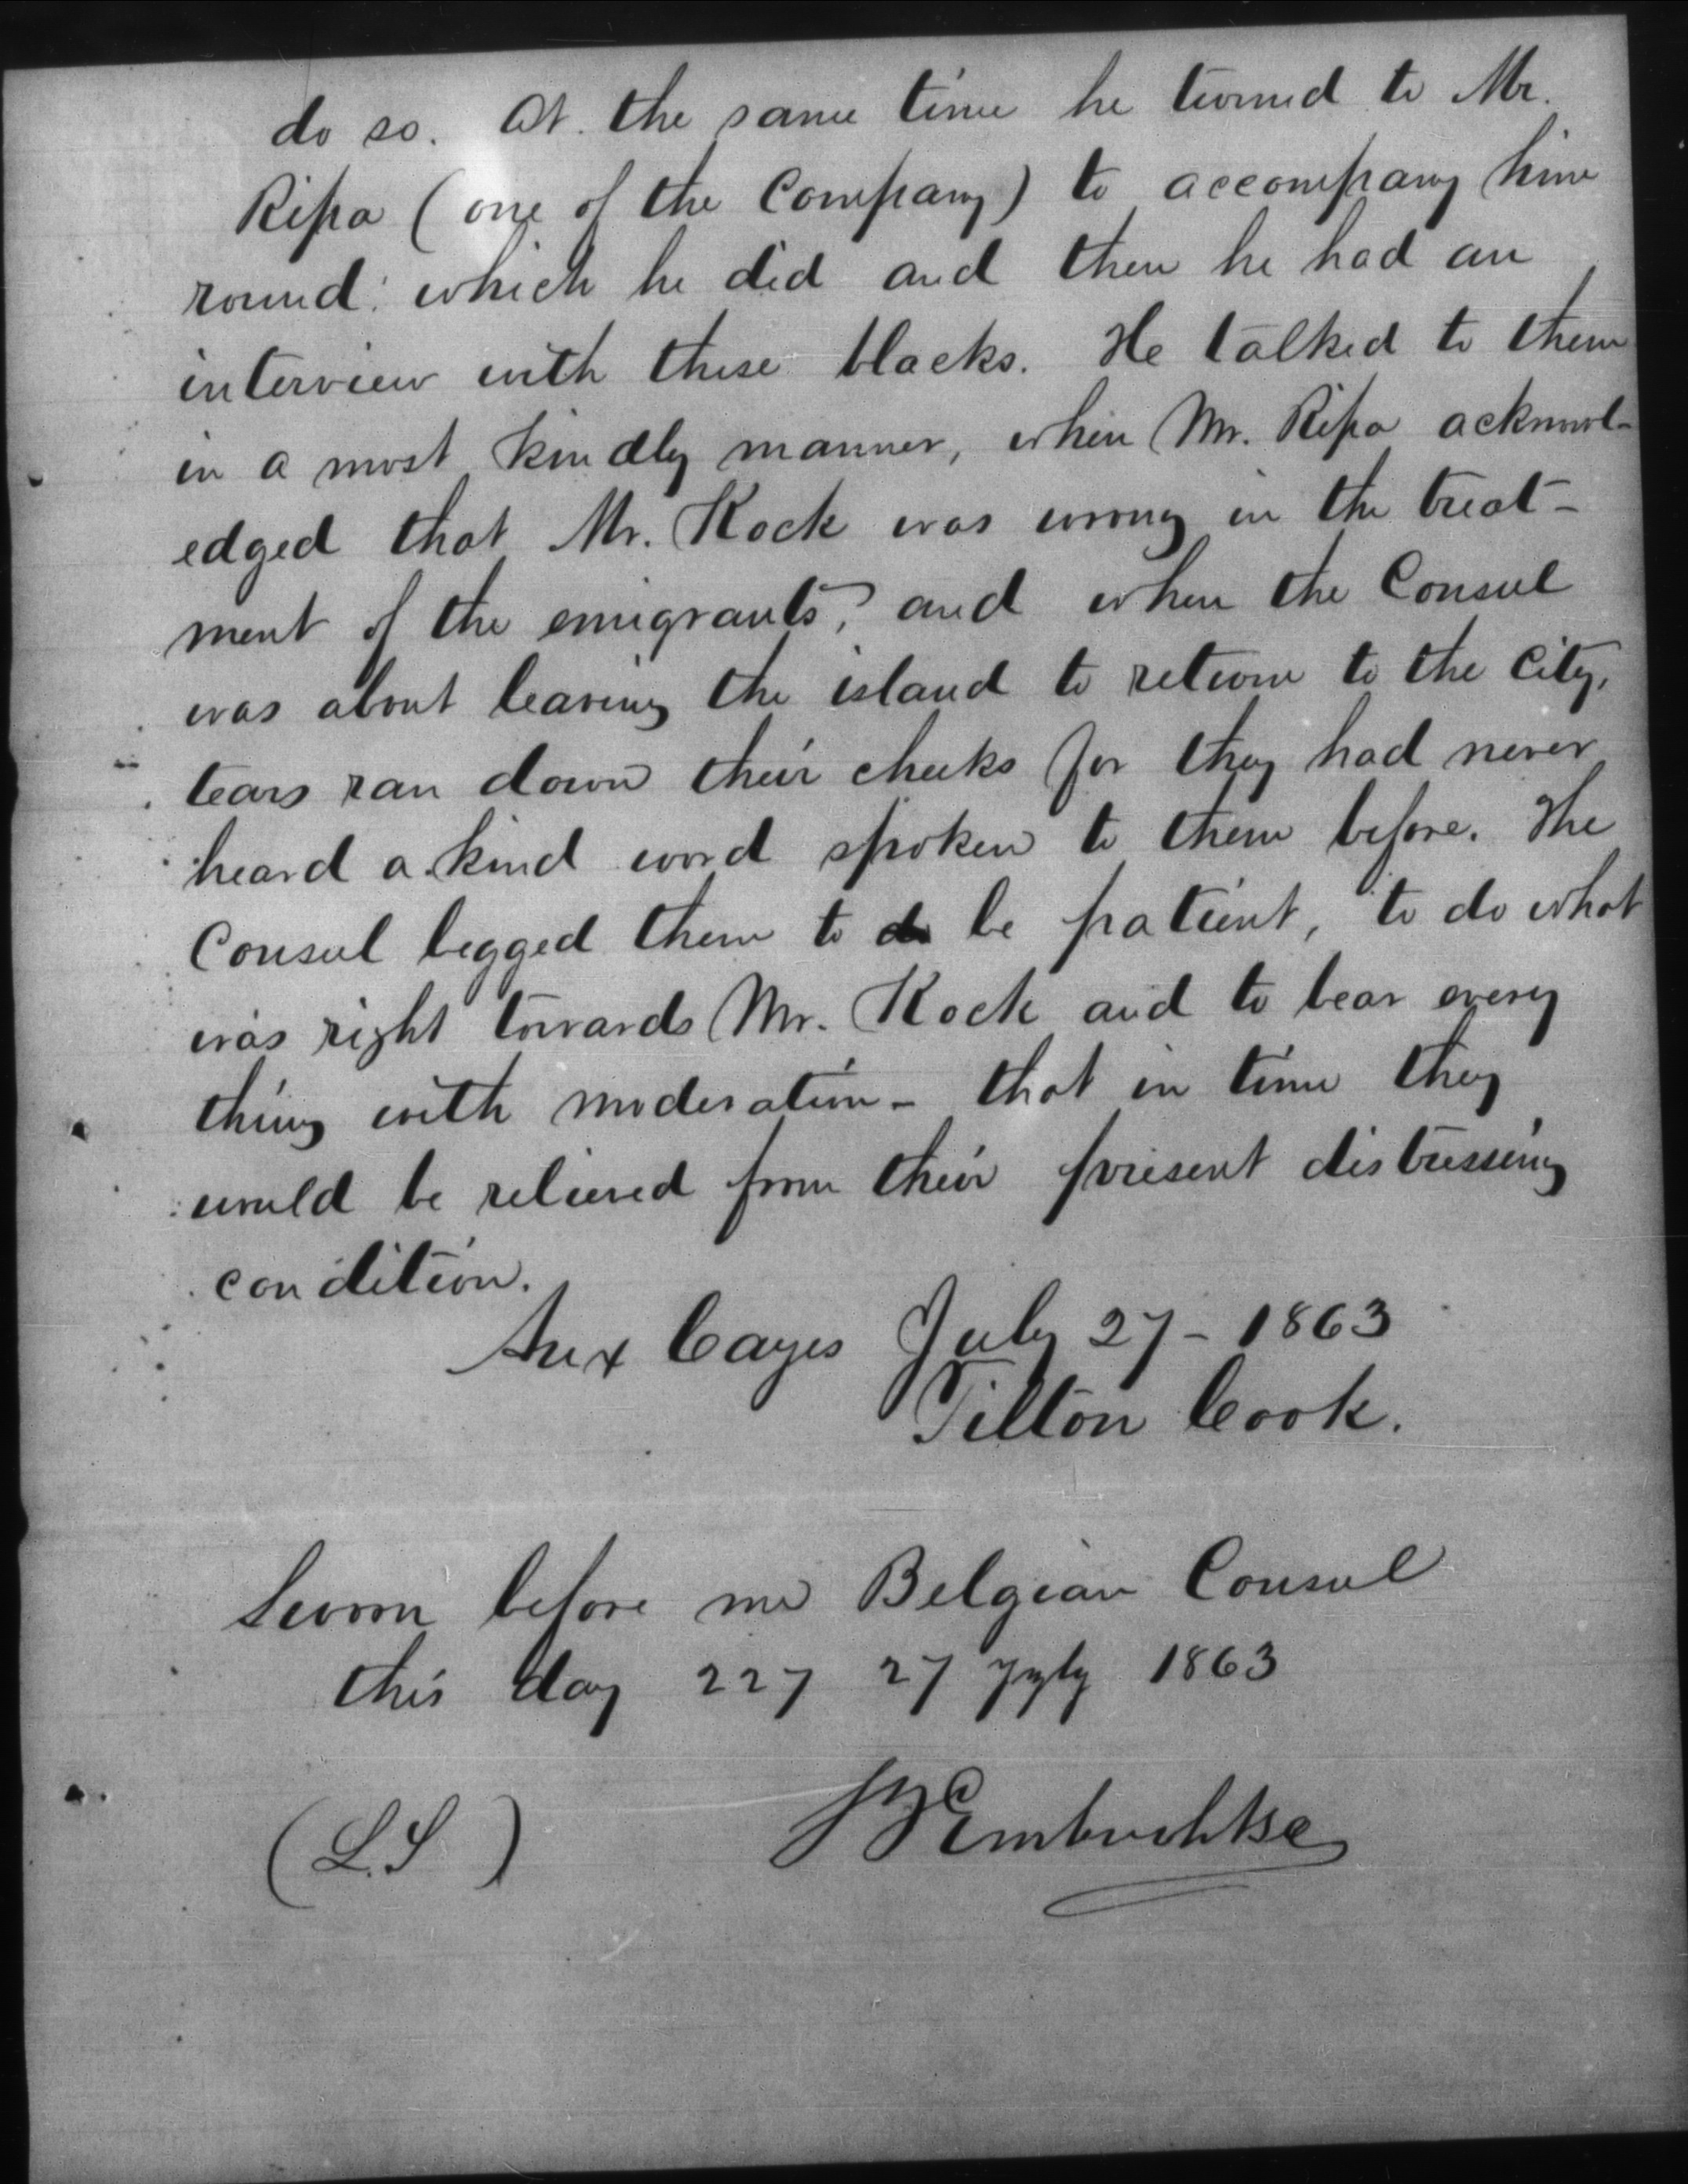 do so. At the same time he turned to Mr.
Ripa (one of the Company) to accompany him
round: which he did and then he had an
interview with these blacks. He talked to them
in a most kindly manner, when Mr. Ripa acknowl-
edged that Mr. Kock was wrong in the treat-
ment of the emigrants, and when the Consul
was about leaving the island to return to the City,
tears ran down their cheeks for they had never
heard a kind word spoken to them before. The
Consul begged them to be patient, to do what
was right towards Mr. Kock and to bear every
thing with moderation - that in time they
would be relieved from their present distressing
condition.
Aux Cayes July 27 - 1863
Tilton Cook.
Sworn before me Belgian Consul
this day 227 27 July 1863
(L.S)